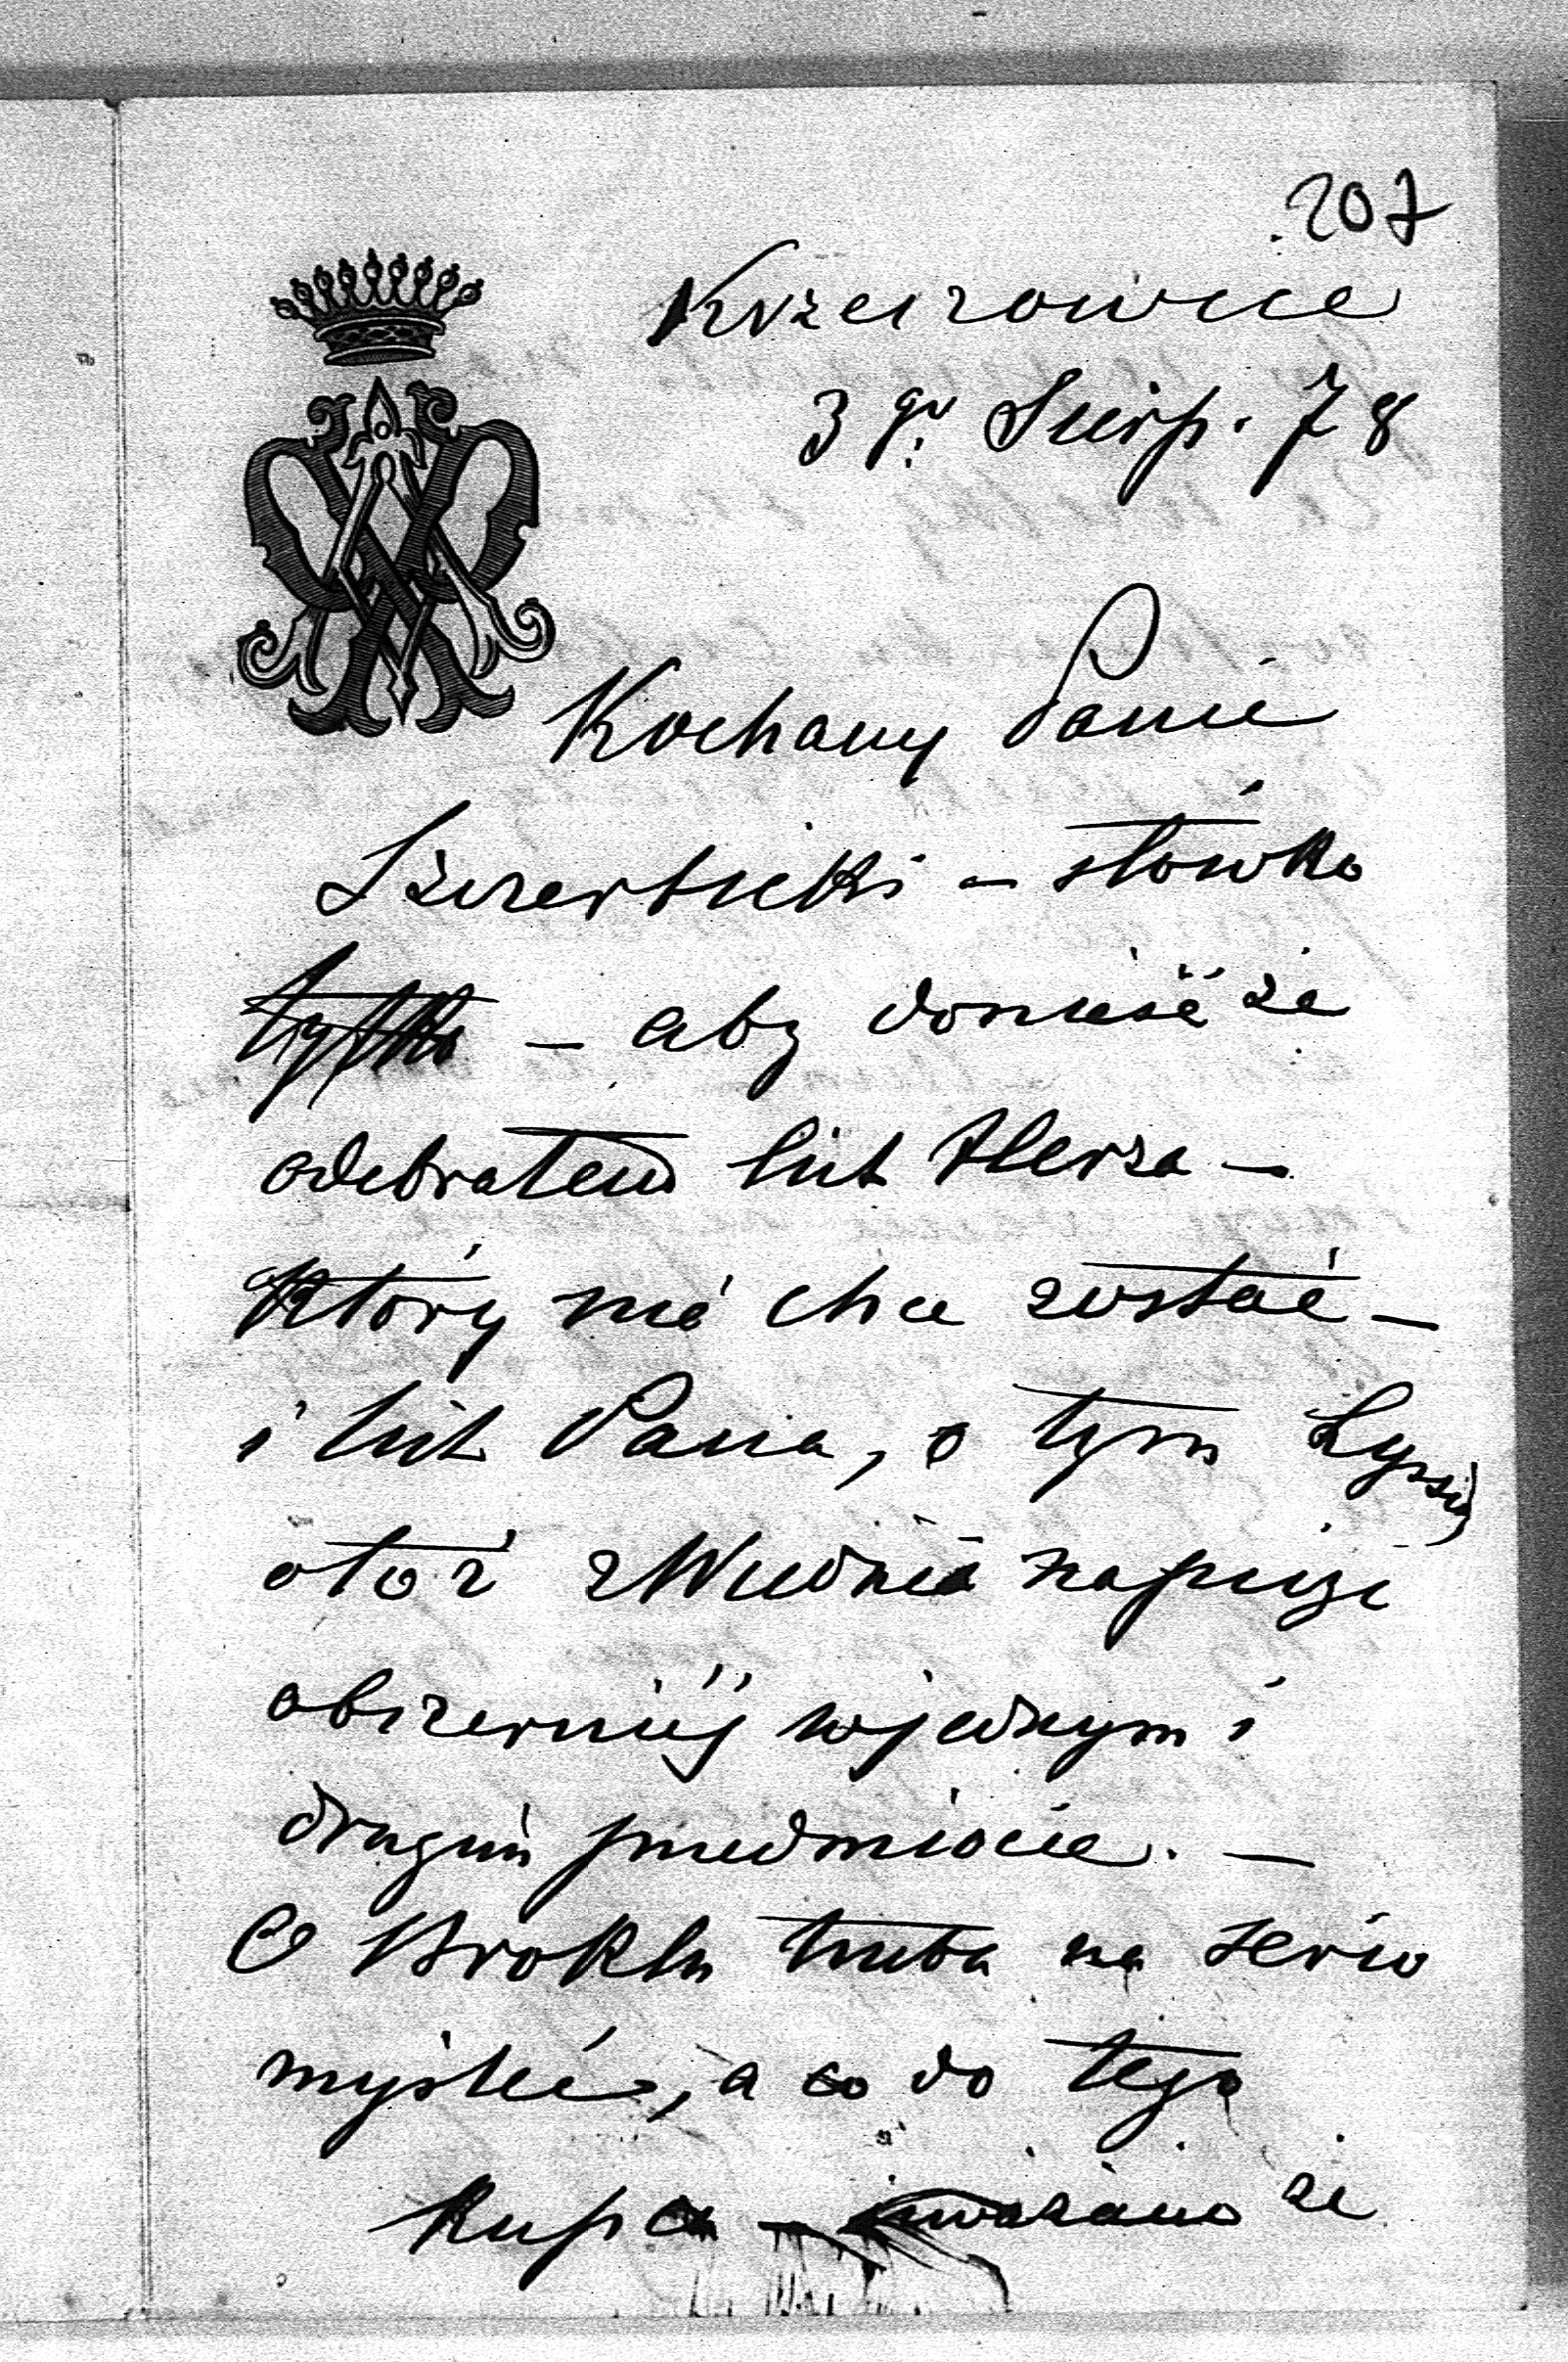 207
Krzeszowice
3go Sierp. 78
Kochany Panie
Szczerbicki – słówko
tylko – aby donieść że
odebrałem list Herza –
który nie chce zostać –
i list Pana, o tym
otóż z Wiednia napiszę
obszerniéj w jednym i
drugim przedmiocie. –
O Broklu trzeba na serio
myśleć, a co do tego
kupca – uważam że